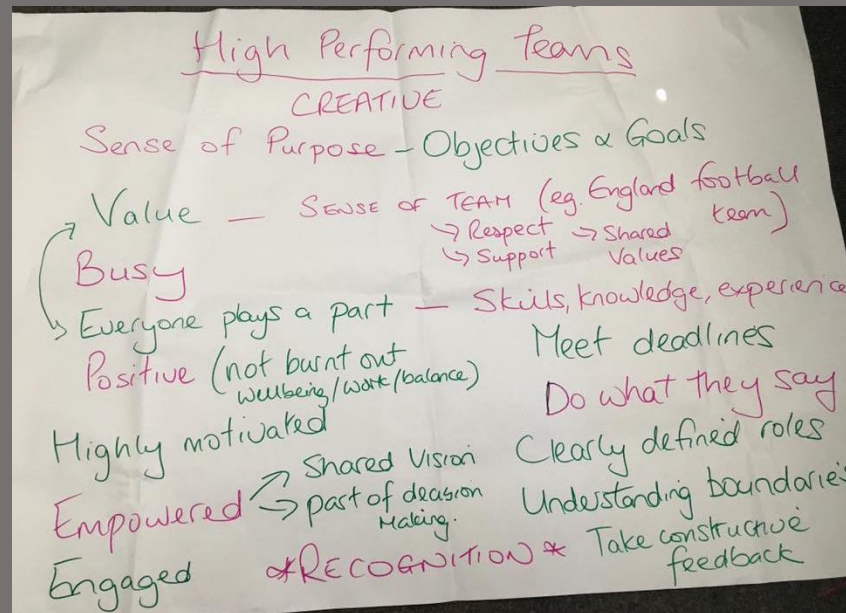 High Performing Teams
CREATIVE
Sense of Purpose - Objectives & Goals
Value — SENSE OF TEAM (eg. England football team)
→ Respect → Shared Values
→ Support
Busy
→ Everyone plays a part — Skills, knowledge, experience
Positive (not burnt out
wellbeing/work/balance)
Meet deadlines
Do what they say
Highly motivated
Clearly defined roles
Empowered → Shared Vision
→ part of decision
Making.
Understanding boundaries
Engaged
*RECOGNITION*
Take constructive
feedback